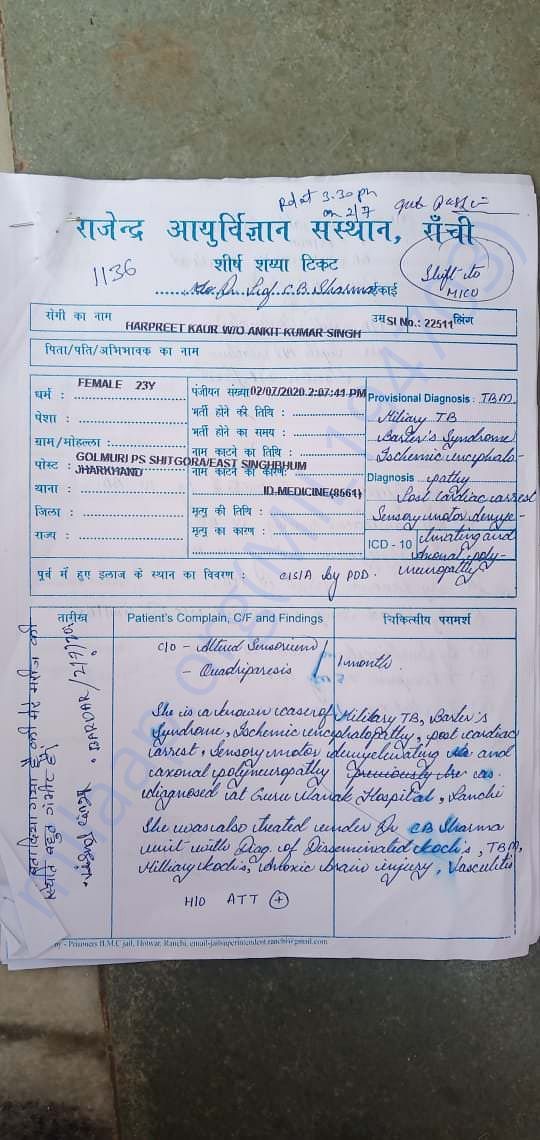 Pd at 3.30 pm
on 2/7
राजेन्द्र आयुर्विज्ञान संस्थान, राँची
1136
शीर्ष शय्या टिकट
Shift to
MICU
Dr. Prof. C.B. Sharma इकाई
रोगी का नाम
HARPREET KAUR W/O ANKIT KUMAR SINGH
उम्र
SI No.: 22511
लिंग
पिता/पति/अभिभावक का नाम
FEMALE 23Y
धर्म :
पेशा :
ग्राम/मोहल्ला :
GOLMURI PS SHITGORA/EAST SINGHBHUM
पोस्ट :
JHARKHAND
थाना :
जिला :
राज्य :
पंजीयन संख्या
02/07/2020 2:07:41 PM
भर्ती होने की तिथि :
भर्ती होने का समय :
नाम काटने का तिथि :
नाम काटने का कारण:
ID-MEDICINE(8561)
मृत्यु की तिथि :
मृत्यु का कारण :
Provisional Diagnosis : TBM
Miliary TB
Barter's Syndrome
Ischemic encephalo-
Diagnosis pathy
Post cardiac arrest
Sensory motor demye-
ICD - 10 linating and
axonal poly-
neuropathy
पूर्व में हुए इलाज के स्थान का विवरण : C/S/A by POD.
तारीख
Patient's Complain, C/F and Findings
चिकित्सीय परामर्श
C/O - Altred Sensorium
- Quadriparesis
1 month.
She is a known case of Military TB, Barter's
Syndrome, Ischemic encephalopathy, post cardiac
arrest, Sensory motor demyelinating and
axonal polyneuropathy Previously
diagnosed at Guru Nanak Hospital, Ranchi
She was also treated under Dr CB Sharma
unit with Diag. of Disseminated Koch's, TBM,
Milliary Koch's, Anoxic brain injury, Vasculitis
H/O ATT +
बता दिया गया है की मेरे मरीज की
स्थिति बहुत गंभीर है।
2/7/20
- Prisoners B.M.C jail, Hotwar, Ranchi, email-jailsuperintendent.ranchi@gmail.com